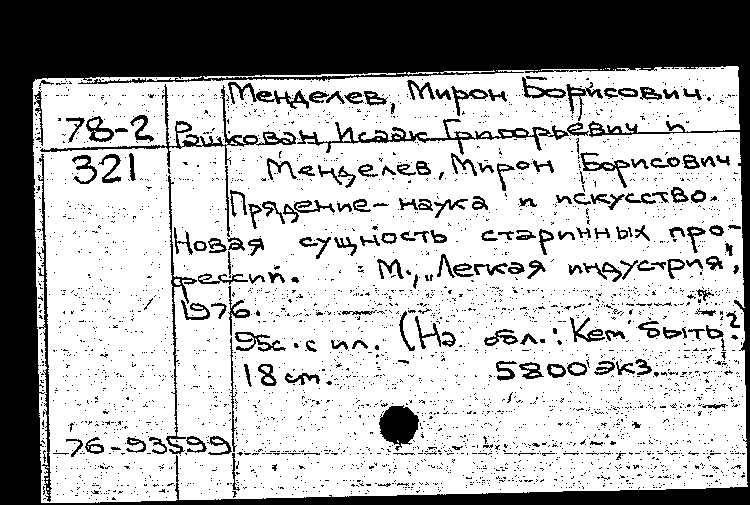 Менделев, Мирон Борисович.
78-2 Рашкован, Исаак Григорьевич и
321 Менделев, Мирон Борисович.
Прядение – наука и искусство.
Новая сущность старинных про-
фессий. М., „Легкая индустрия",
1976.
95с. с ил. (На обл.: Кем быть?)
18 см. 5800 экз.
76-93599